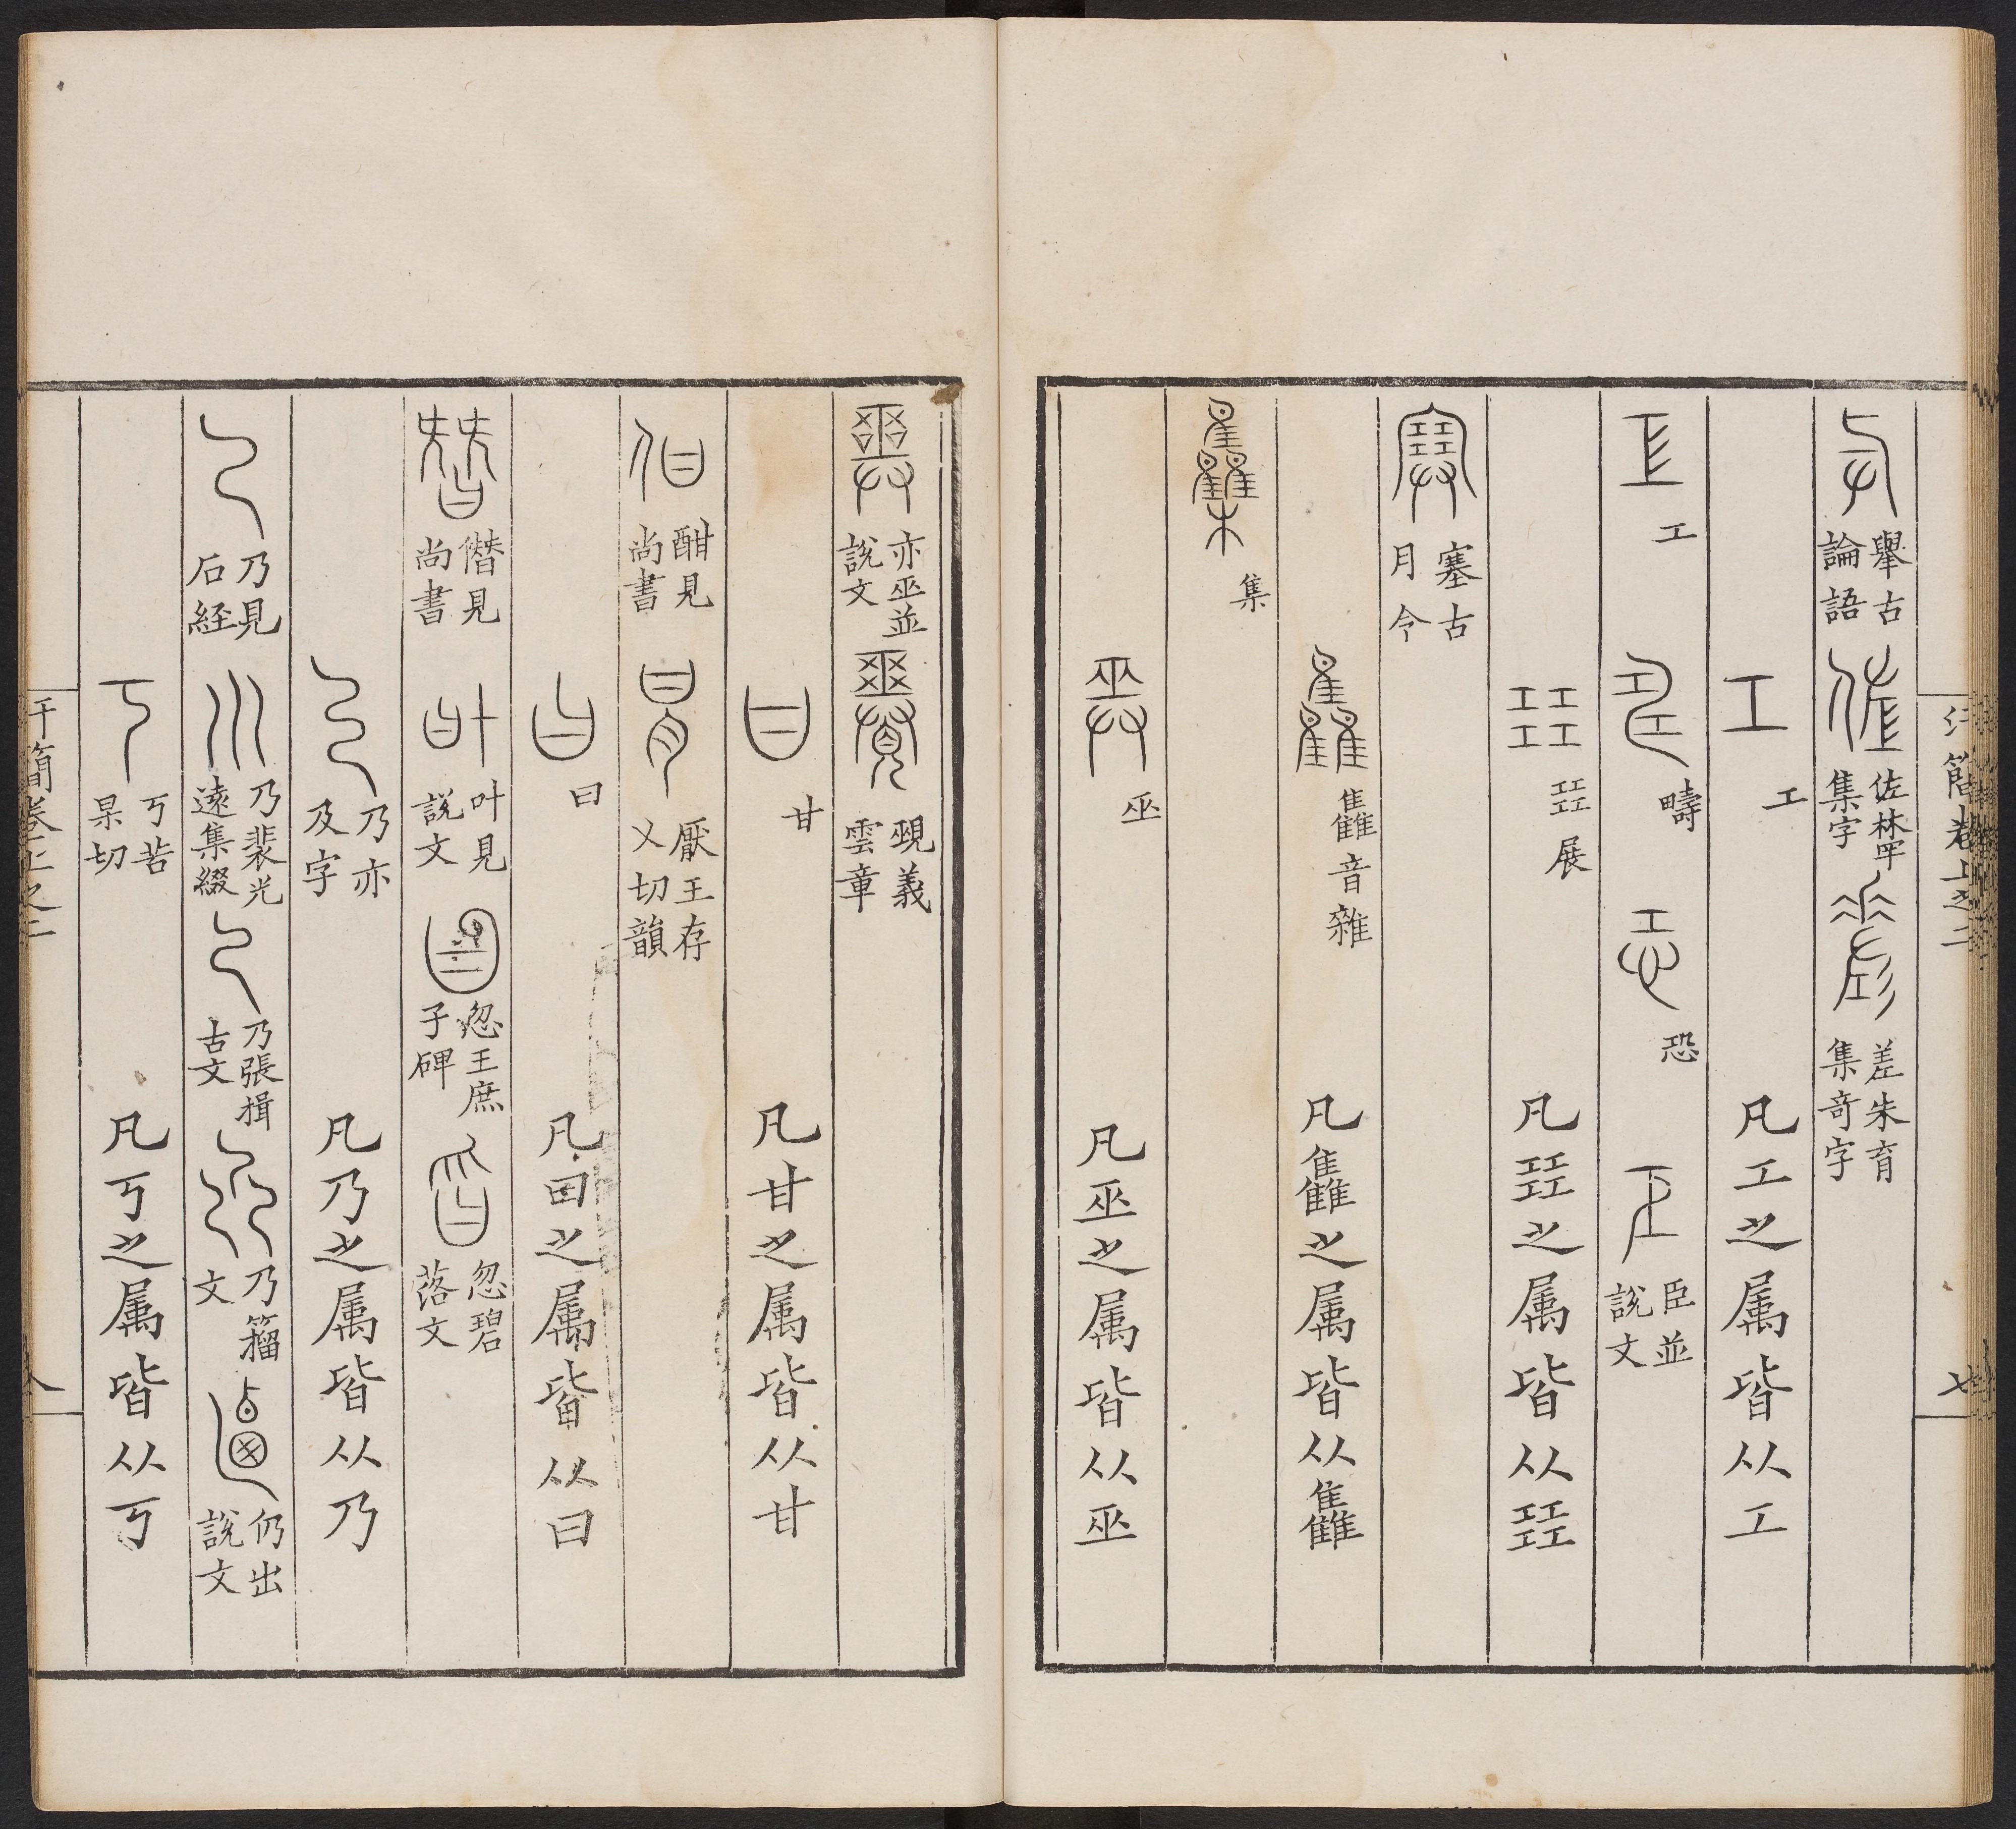 汗簡卷上之二 七
舉古論語 佐林罕集字 差朱育集奇字
工 凡工之属皆从工
工 疇 恐 臣並說文
㠭展 凡㠭之属皆从㠭
塞古月令
雥音雜 凡雥之属皆从雥
集
巫 凡巫之属皆从巫
亦巫並說文 覡義雲章
甘 凡甘之属皆从甘
酣見尚書 厭王存乂切韻
曰 凡曰之属皆从曰
僭見尚書 叶見說文 忽王庶子碑 忽碧落文
乃亦及字 凡乃之属皆从乃
乃見石經 乃裴光遠集綴 乃張揖古文 乃籀文 仍出說文
丂苦杲切 凡丂之属皆从丂
汗簡卷上之二 八